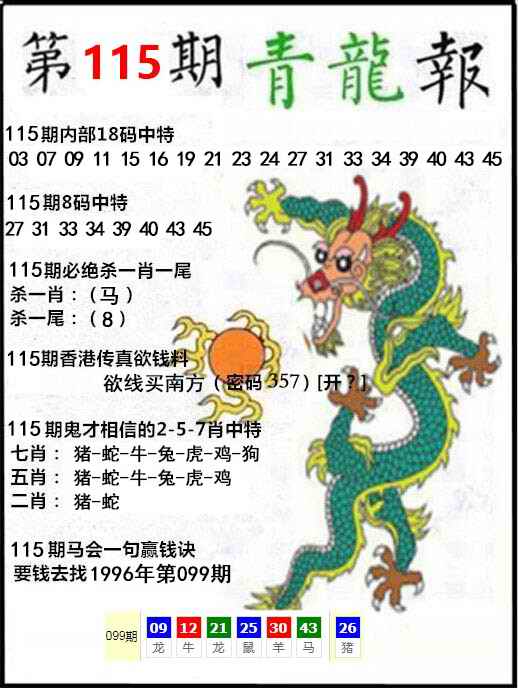 第115期青龍報
115期内部18码中特
03 07 09 11 15 16 19 21 23 24 27 31 33 34 39 40 43 45
115期8码中特
27 31 33 34 39 40 43 45
115期必绝杀一肖一尾
杀一肖：（马）
杀一尾：（8）
115期香港传真欲钱料
欲线买南方（密码357）[开？]
115期鬼才相信的2-5-7肖中特
七肖： 猪-蛇-牛-兔-虎-鸡-狗
五肖： 猪-蛇-牛-兔-虎-鸡
二肖： 猪-蛇
115期马会一句赢钱诀
要钱去找1996年第099期
099期 09 12 21 25 30 43 26
龙 牛 龙 鼠 羊 马 猪